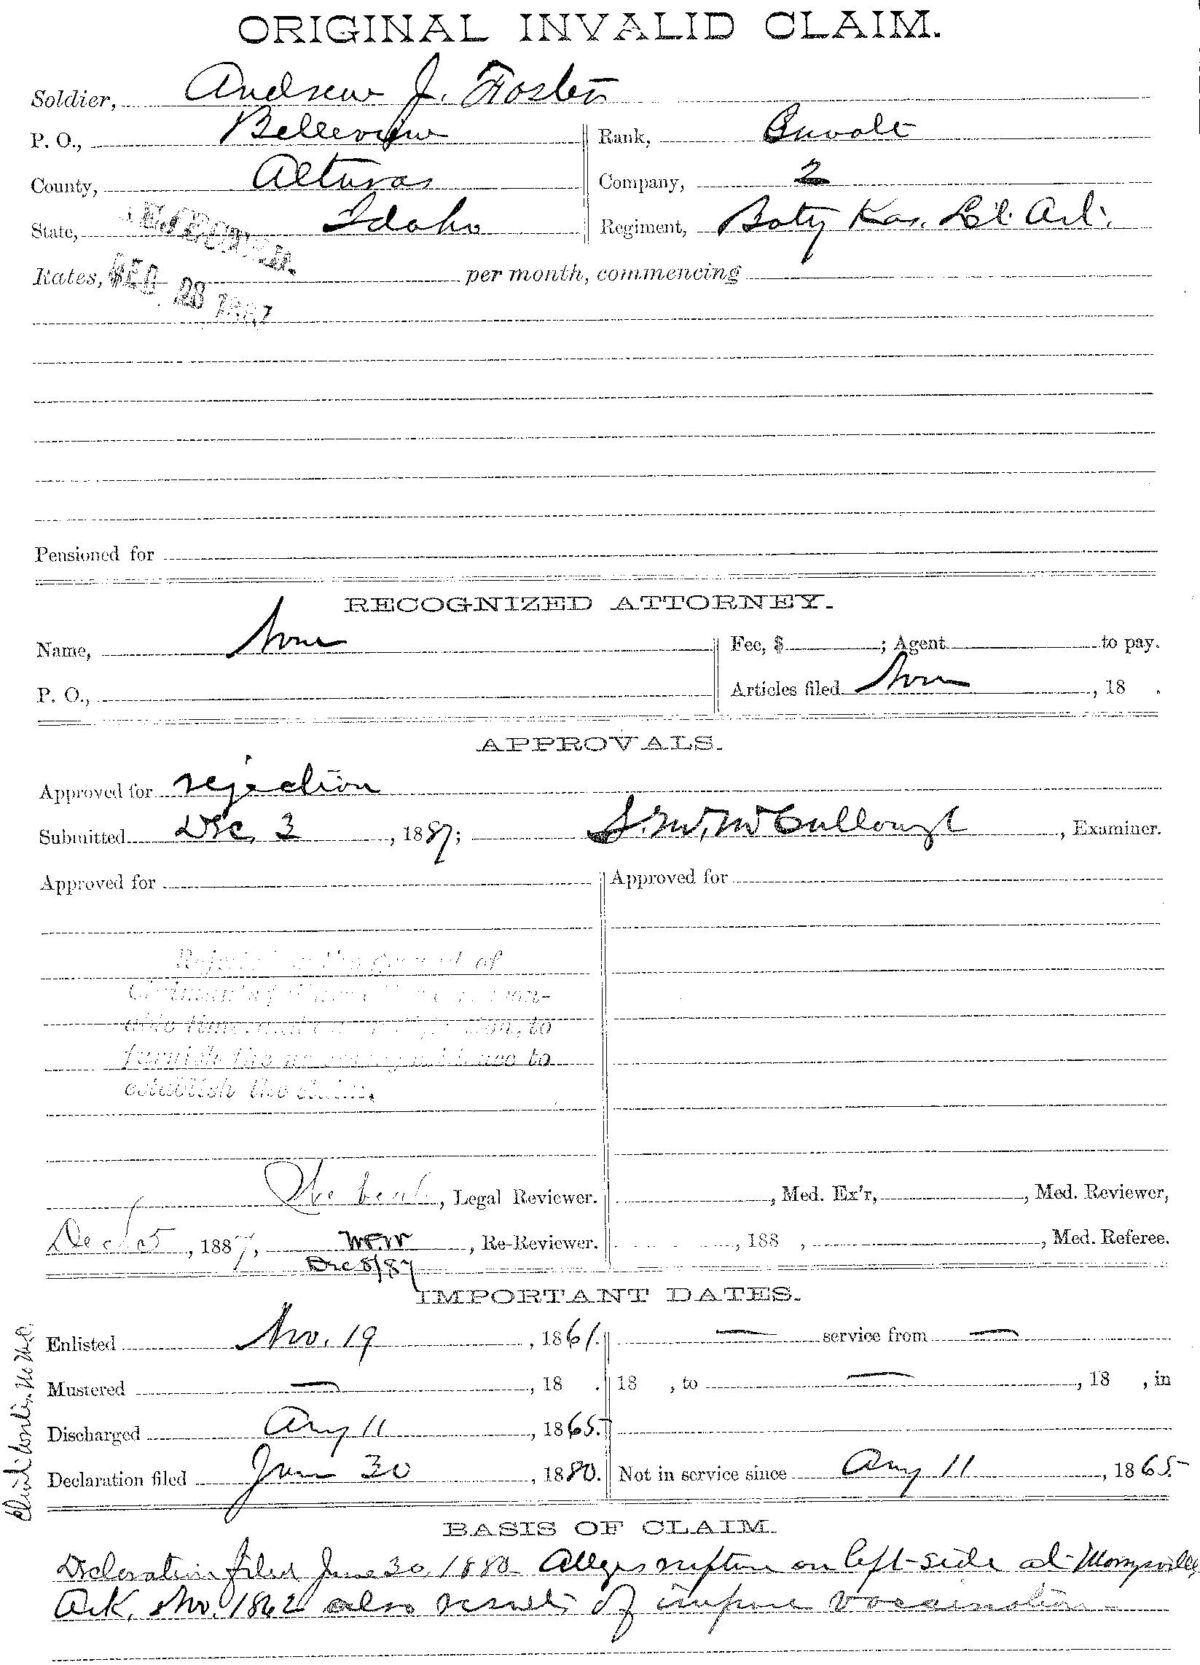 ORIGINAL INVALID CLAIM.
Soldier, Andrew J. Foster
P. O., Bellevue Rank, Private
County, Alturas Company, 2
State, Idaho Regiment, Baty Kas. Lt. Art.
REJECTED.
Rates, per month, commencing
DEC 23 1887
Pensioned for
RECOGNIZED ATTORNEY.
Name, None Fee, $ ; Agent to pay.
P. O., Articles filed None , 18 .
APPROVALS.
Approved for rejection
Submitted Dec. 3 , 1887; S. M. McCullough , Examiner.
Approved for Approved for
Rejected on the ground of
Claimant's
able time, and to
furnish the necessary evidence to
establish the claim.
, Legal Reviewer. , Med. Ex'r, , Med. Reviewer,
Dec 5 , 1887, , Re-Reviewer. , 188 , , Med. Referee.
Dec 8/87
IMPORTANT DATES.
Enlisted Nov. 19 , 1861. — service from —
Mustered — , 18 . 18 , to — , 18 , in
Discharged Aug 11 , 1865.
Declaration filed June 30 , 1880. Not in service since Aug 11 , 1865
BASIS OF CLAIM.
Declaration filed June 30, 1880. Alleges rupture on left side at Morrysville,
Ark. Nov. 1862 also results of impure vaccination